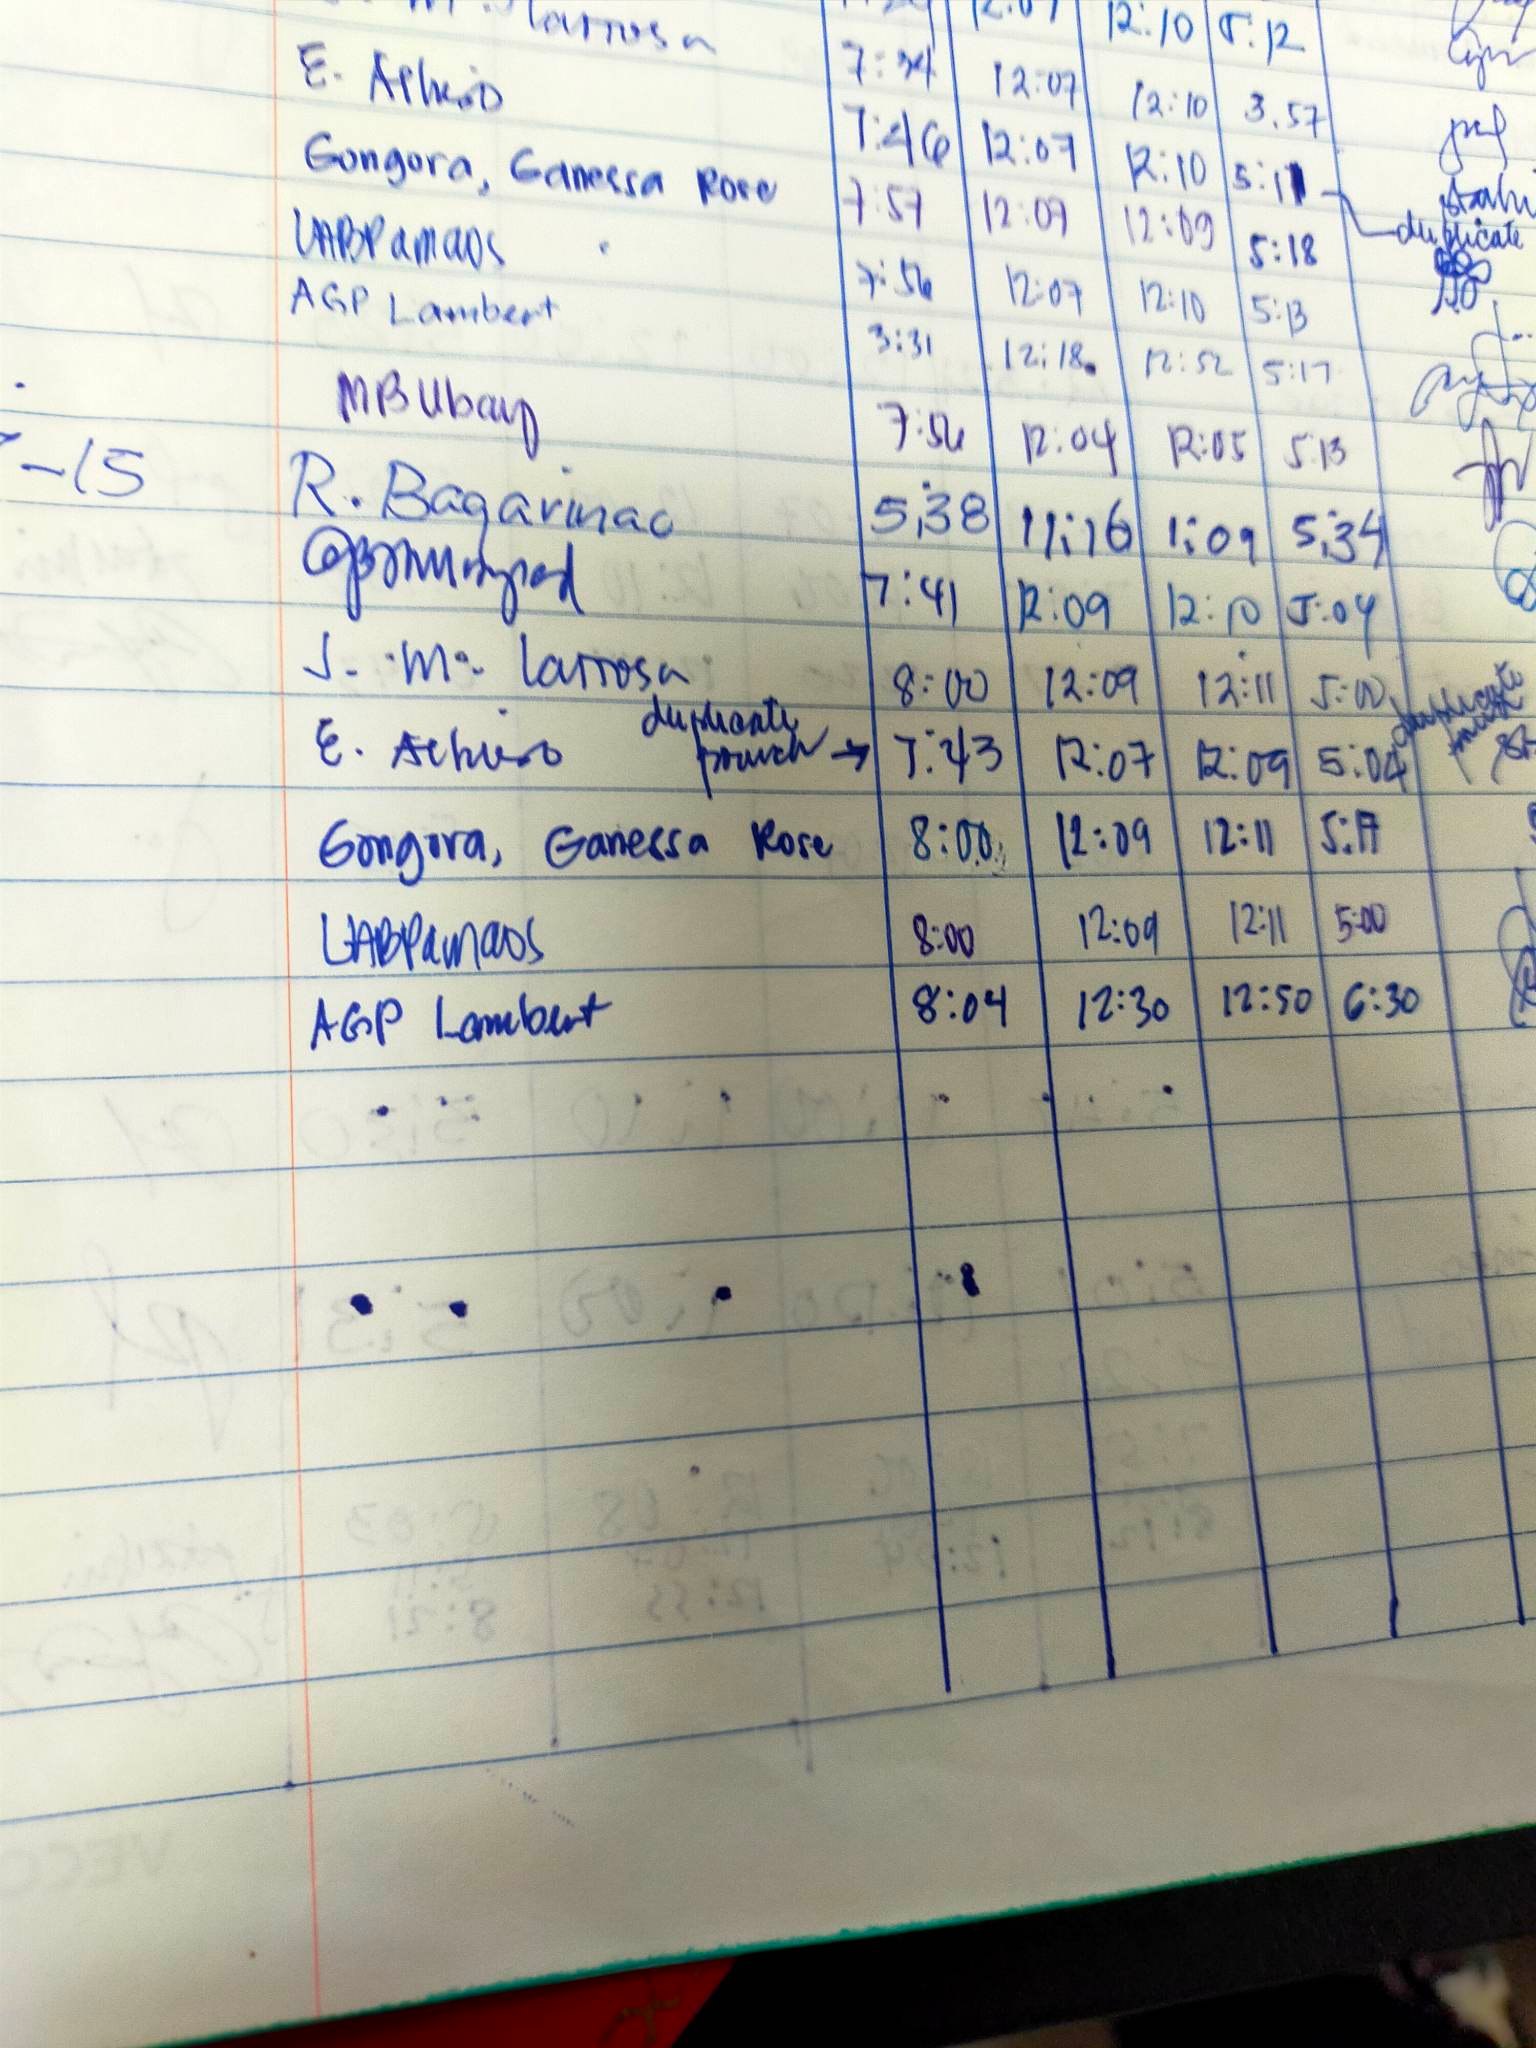 larrosa 12:07 12:10 5:12
E. 7:34 12:07 12:10 3.57
Gongora, Ganessa Rose 7:46 12:07 12:10 5:11
LABPamaos 7:57 12:07 12:09 5:18 duplicate
AGP Lambert 7:56 12:07 12:10 5:13
3:31 12:18 12:52 5:17
MBUbay 7:56 12:04 12:05 5:13
-15 R. Bagarinao 5:38 11:16 1:09 5:34
7:41 12:09 12:10 5:04
J. M. larrosa 8:00 12:09 12:11 5:00
E. duplicate punch → 7:43 12:07 12:09 5:04 duplicate punch
Gongora, Ganessa Rose 8:00 12:09 12:11 5:17
LABPamaos 8:00 12:09 12:11 5:00
AGP Lambert 8:04 12:30 12:50 6:30